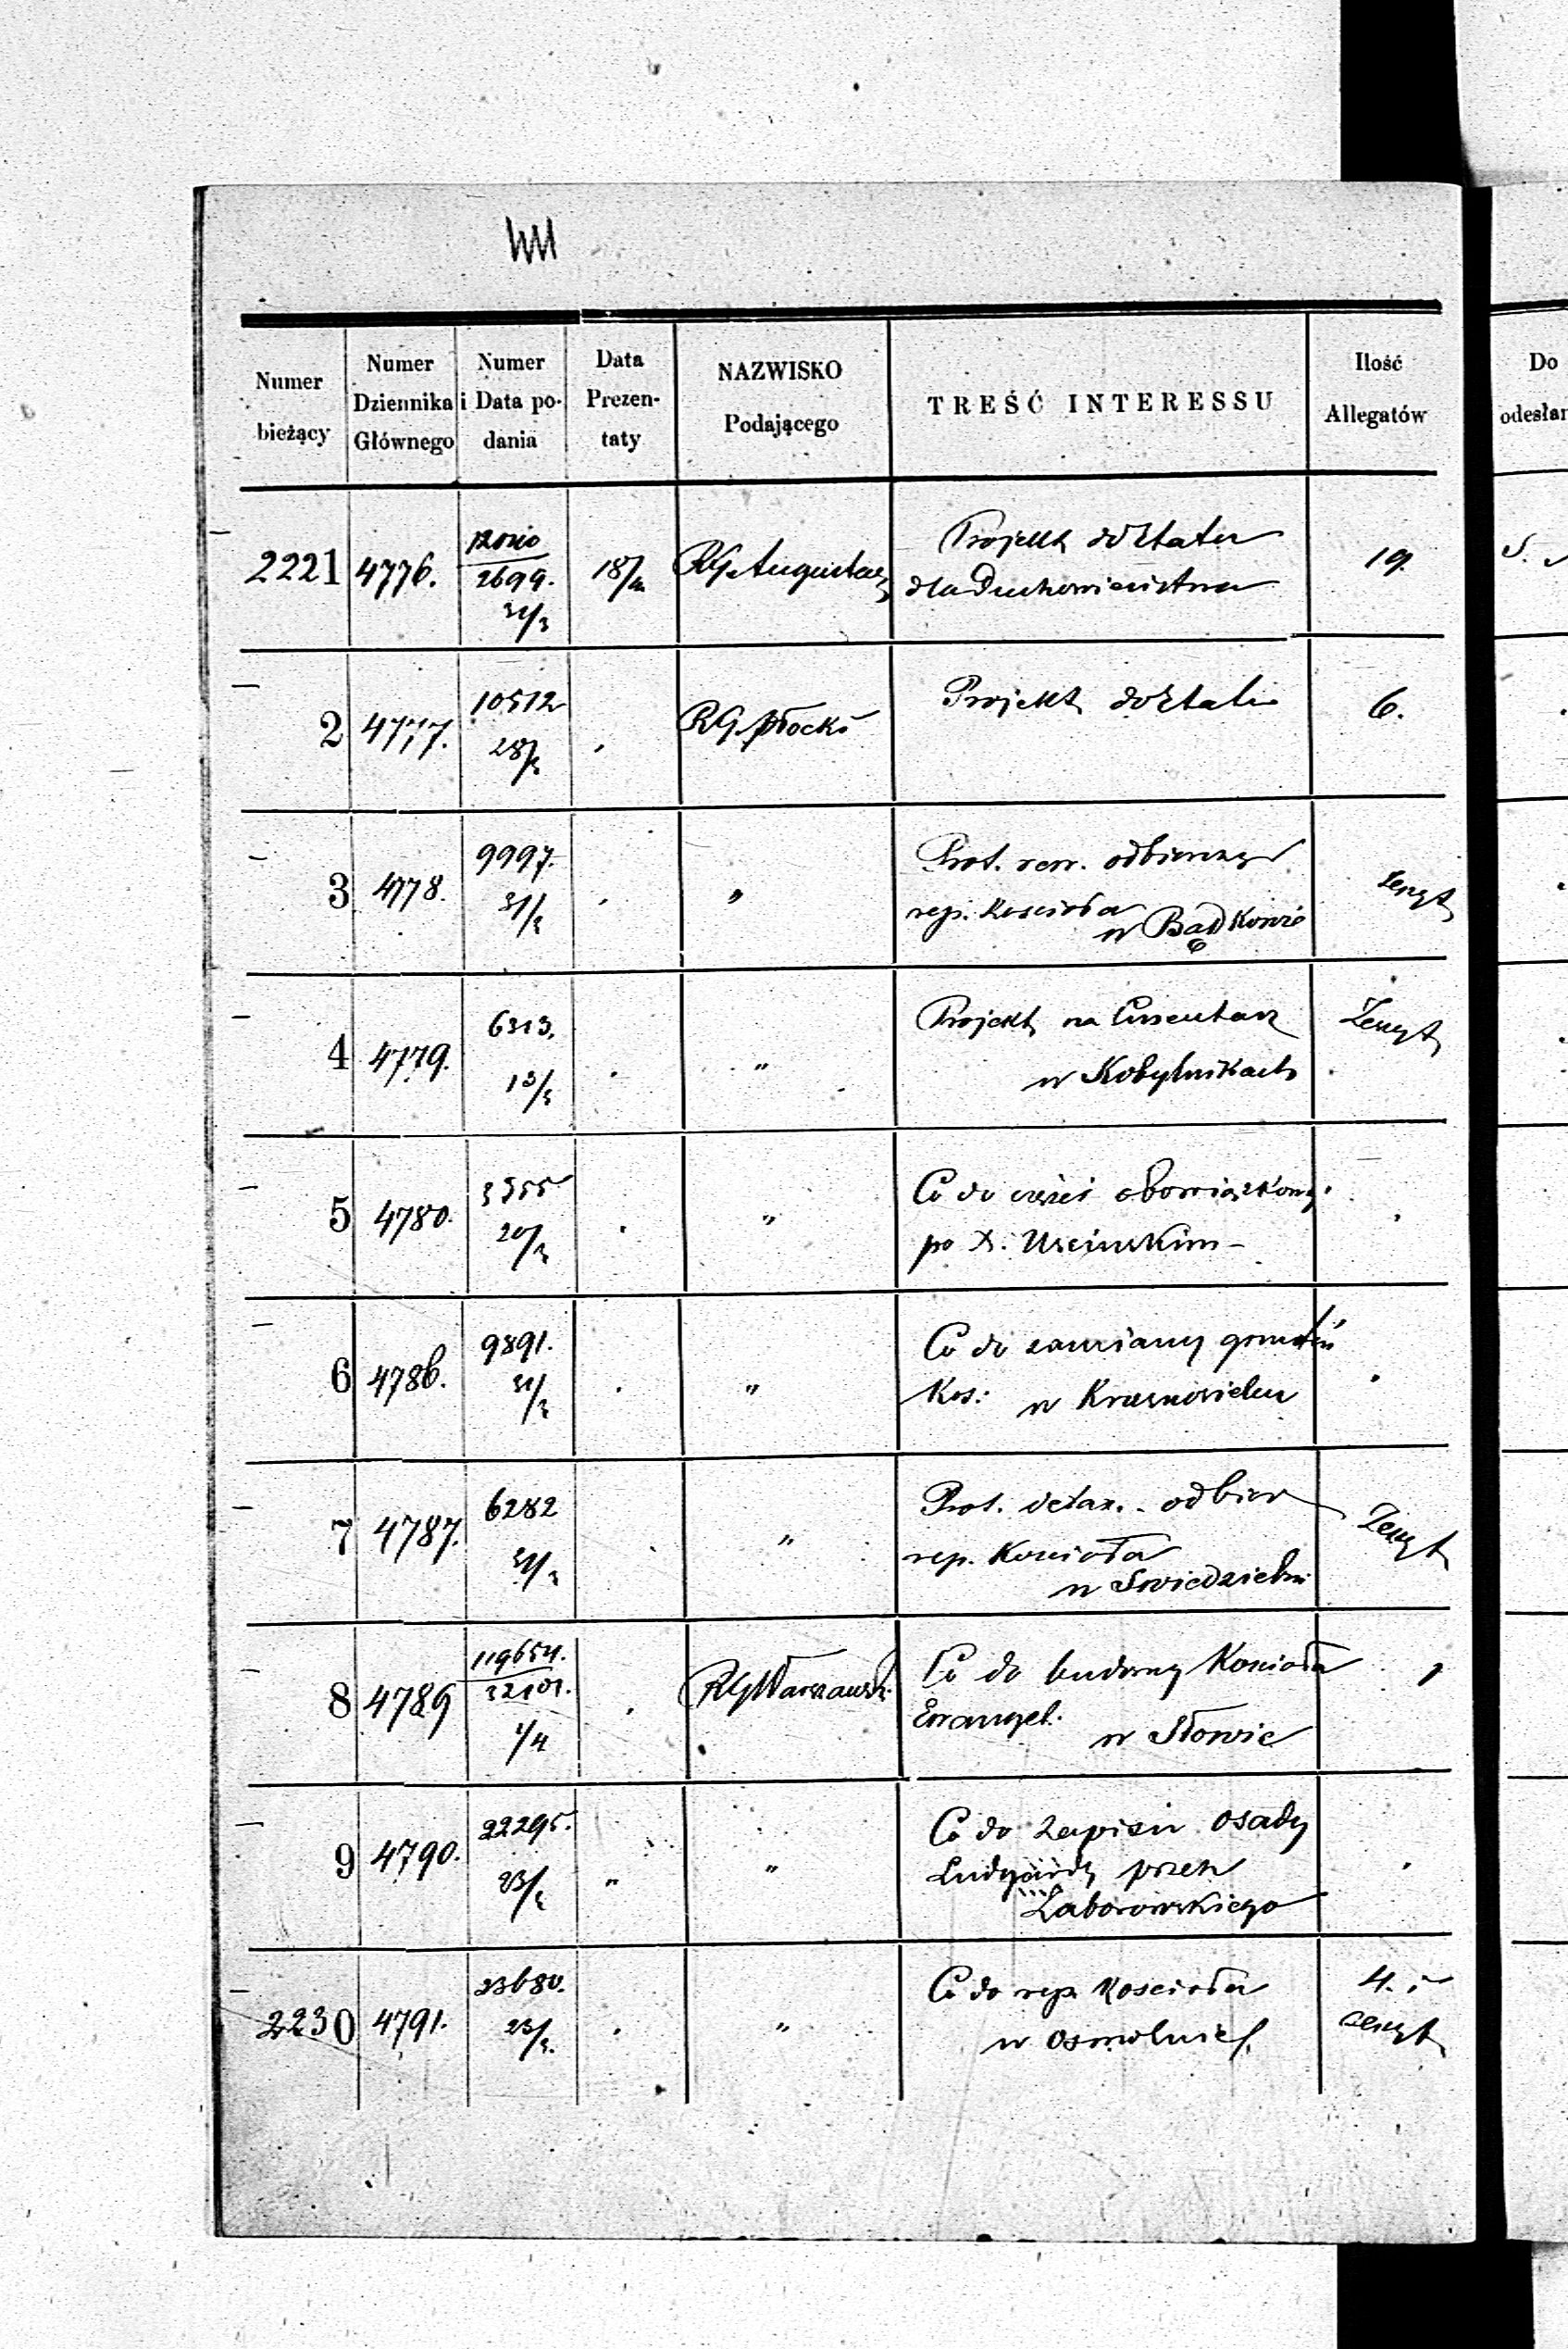 Numer bieżący
Numer Dziennika Głównego
Numer i Data podania
Data Prezentaty
NAZWISKO Podającego
TREŚĆ INTERESSU
Ilość Allegatów
Do
2221 4776. 2699. 18/4 RG Augustow Projekt do Etatu
dla Duchowieństwa 19.
2 4777. 10512 28/3 RG Płocki Projekt do Etatu 6.
3 4778. 9997. 31/3 „ Prot. rew. odbiorczy
rep. Kościoła
w Bądkowie Zeszyt
4 4779. 6313. 13/3 „ Projekt na Cmentarz
w Kobylnikach Zeszyt
5 4780. 3955 20/3 „ Co do części obowiązkowy
po X. Uścinskim –
6 4786. 9891. 31/3 „ Co do zamiany gruntów
Kos: w Krasnosielcu
7 4787. 6282 31/3 „ Prot. odbior
rep. Kościoła
w Swiedziebni Zeszyt
8 4789 119654. 32101. 1/4 RG Warszawsk. Co do budowy Kościoła
Ewangel.
w Słowie 1
9 4790. 22295. 23/3 „ „ Co do zapisu osady
przez
Zaborowskiego
2230 4791. 23680. 23/3. „ Co do rep. Kościoła
w Osmolnie 4. i
zeszyt